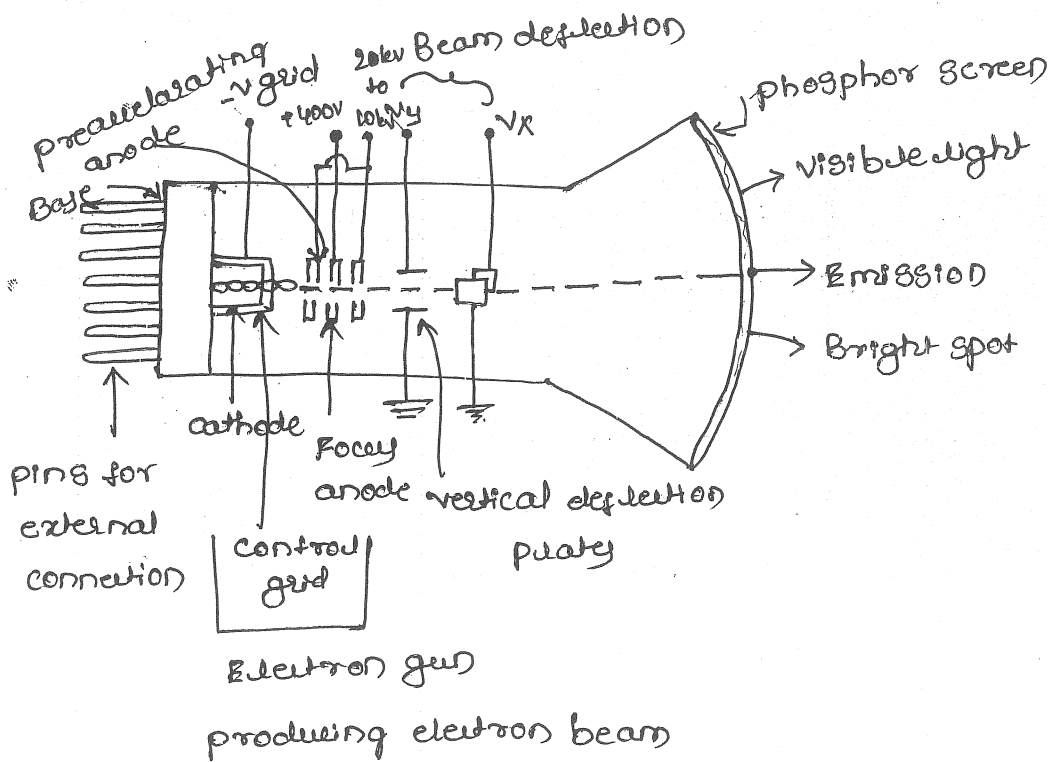 Preaccelarating
anode
-V grid
+400V
20kv
to
10kv
Vy
Beam deflection
Vx
Phosphor screen
Visible light
Base
Emission
Bright spot
Cathode
Focus
anode
Vertical deflection
plates
Pins for
external
connection
Control
grid
Electron gun
producing electron beam